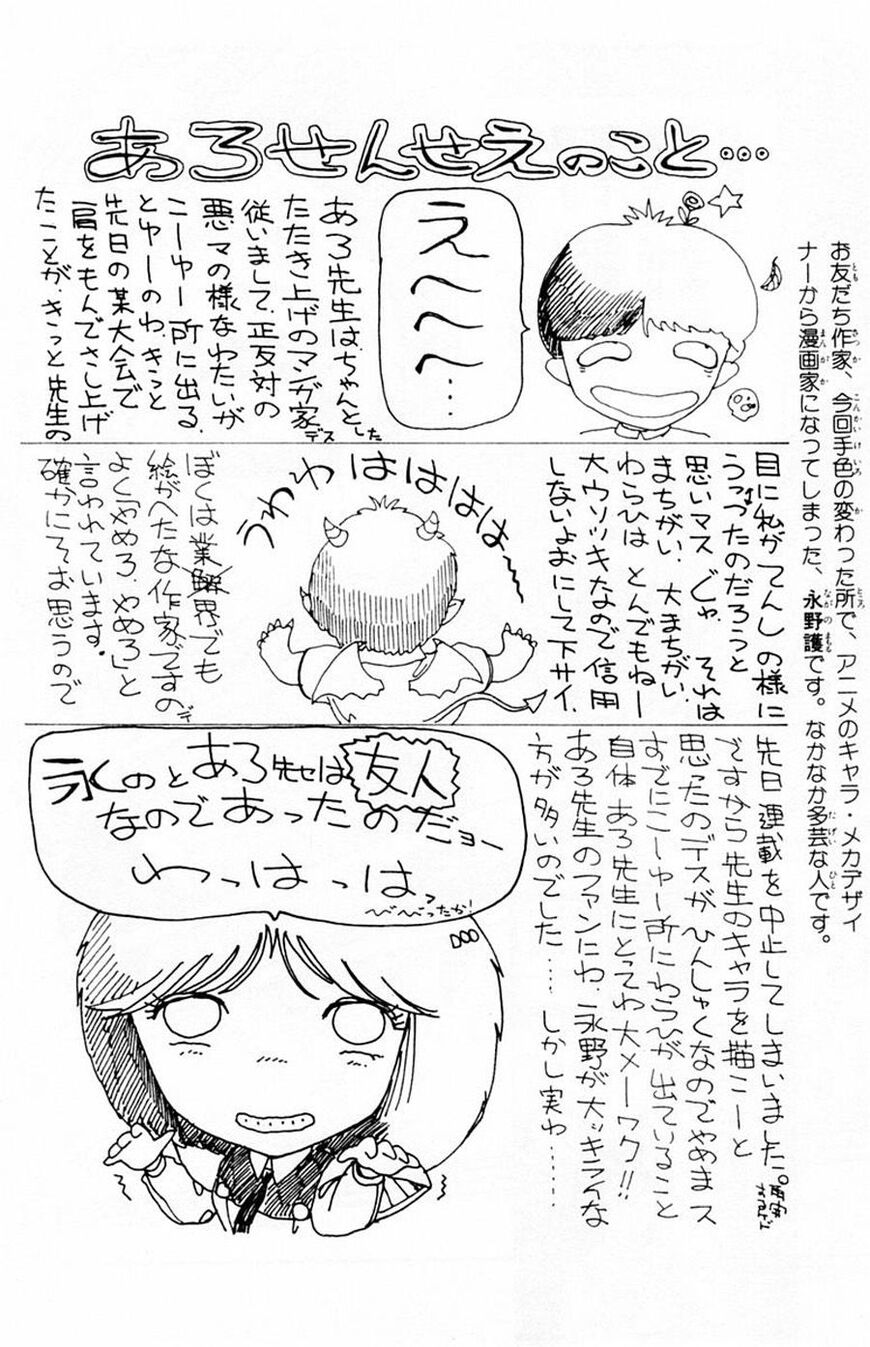 あろせんせえのこと…
お友だち作家、今回手色の変わった所で、アニメのキャラ・メカデザイ
ナーから漫画家になってしまった、永野護です。なかなか多芸な人です。
え〜〜〜〜……
あろ先生は、ちゃんとした
たたき上げのマンガ家デス
従いまして、正反対の
悪マの様なわたいが
こーゆー所に出る、
とゆーのわ、きっと
先日の某大会で
肩をもんでさし上げ
たことが、きっと先生の
目に私がてんしの様に
うつったのだろうと
思いマス じゃ、それは
まちがい、大まちがい、
わらひは とんでもねー
大ウソツキなので信用
しないよおにして下サイ、
うわわははははー
ぼくは業界でも
絵がへたな作家ですので
よく「やめろ、やめろ」と
言われています。
確かにそお思うので
先日、連載を中止してしまいました。
ですから先生のキャラを描こーと
思ったのデスがひんしゃくなのでやめまス
すでにこーゆー所にわらひが出ていること
自体 あろ先生にとってわ大メーワク!!
あろ先生のファンにわ、永野が大ッキライな
方が多いのでした…… しかし実わ……
永のとあろ先セは友人
なのであったのだョー
わっはっはっ
DOO